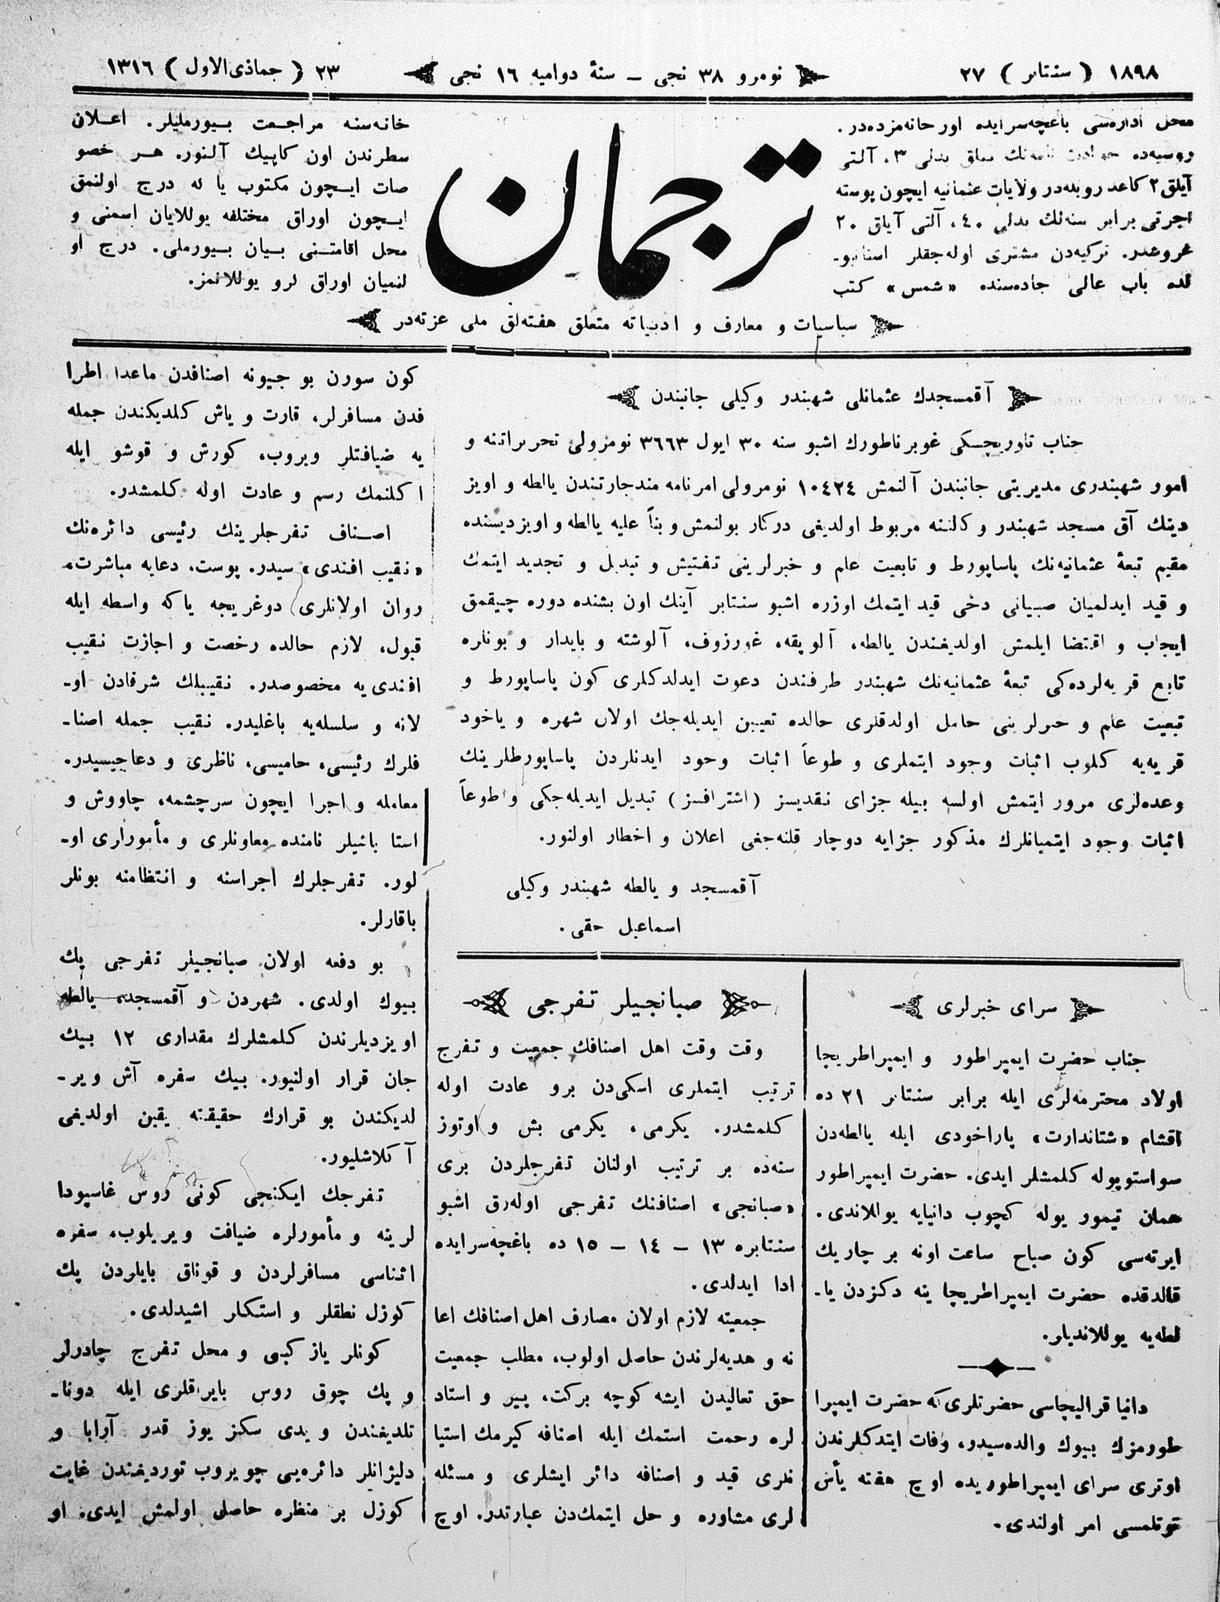 ١٨٩٨ ( سنتابر ) ٢٧
نومرو ٣٨ نجی – سنۀ دوامیه ١٦ نجی
٢٣ ( جماذی‌الاول ) ١٣١٦
محل اداره‌سی باغچه‌سرایده اور خانه‌مزده‌در.
روسیه‌ده بدلی ٣، آلتی
آیلق ٢ کاغد روبله‌در ولایات عثمانیه ایچون پوسته
اجرتی برابر سنه‌لك بدلی ٤٠، آلتی آیلق ٢٠
غروشدر. ترکیه‌دن مشتری اوله‌جقلر استانبو-
لده باب عالی جاده‌سنده «شمس» کتب
خانه‌سنه مراجعت بیورملیلر. اعلان
سطرندن اون کاپیك آلنور. هر خصو
صات ایچون مکتوب یا که درج اولنمق
ایچون اوراق مختلفه یوللایان اسمنی و
محل اقامتنی بیان بیورملی. درج او
لنمیان اوراق کرو یوللانمز.
ترجمان
سیاسیات و معارف و ادبیاته متعلق هفته‌لق ملی غزته‌در
آقمسجدك عثمانلی شهبندر وکیلی جانبندن
جناب تاوریچسکی غوبرناطورك اشبو سنه ٣٠ ایول ٣٦٦٣ نومرولی تحریراتنه و
امور شهبندری مدیریتی جانبندن آلنمش ١٠٤٢٤ نومرولی امرنامه مندجارتندن یالطه و اویز
دینك آق مسجد شهبندر وکالتنه مربوط اولدیغی درکار بولنمش و بناً علیه یالطه و اویزدیسنده
مقیم تبعۀ عثمانیه‌نك پاساپورط و تابعیت علم و خبرلرینی تفتیش و تبدیل و تجدید ایتمك
و قید ایدلمیان صبیانی دخی قید ایتمك اوزره اشبو سنتابر آینك اون بشنده دوره چیقمق
ایجاب و اقتضا ایلمش اولدیغندن یالطه، آلوپقه، غورزوف، آلوشته و بایدار و بونلره
تابع قریه‌لرده‌کی تبعۀ عثمانیه‌نك شهبندر طرفندن دعوت ایدلدکلری کون پاساپورط و
تبعیت علم و خبرلرینی حامل اولدقلری حالده تعیین ایدیله‌جك اولان شهره و یاخود
قریه‌یه کلوب اثبات وجود ایتملری و طوعاً اثبات وجود ایدنلردن پاساپورطلرینك
وعده‌لری مرور ایتمش اولسه بیله جزای نقدیسز (اشترافسز) تبدیل ایدیله‌جکی و طوعاً
اثبات وجود ایتمیانلرك مذکور جزایه دوچار قلنه‌جغی اعلان و اخطار اولنور.
آقمسجد و یالطه شهبندر وکیلی
اسماعیل حقی.
سرای خبرلری
جناب حضرت ایمپراطور و ایمپراطریچا
اولاد محترمه‌لری ایله برابر سنتابر ٢١ ده
اقشام «شتاندارت» پاراخودی ایله یالطه‌دن
سواستوپوله کلمشلر ایدی. حضرت ایمپراطور
همان تیمور یوله کچوب دانیایه یوللاندی.
ایرته‌سی کون صباح ساعت اونه بر چاریك
قالدقده حضرت ایمپراطریچا ینه دکزدن یا-
لطه‌یه یوللاندیلر.
دانیا قرالیچاسی حضرتلری که حضرت ایمپرا
طورمزك بیوك والده‌سیدر، وفات ایتدکلرندن
اوتری سرای ایمپراطوریده اوچ هفته یأس
توتلمسی امر اولندی.
صبانجیلر تفرجی
وقت وقت اهل اصنافك جمعیت و تفرج
ترتیب ایتملری اسکی‌دن برو عادت اوله
کلمشدر. یکرمی، یکرمی بش و اوتوز
سنه‌ده بر ترتیب اولنان تفرجلردن بری
«صبانجی» اصنافنك تفرجی اوله‌رق اشبو
سنتابره ١٣ – ١٤ – ١٥ ده باغچه‌سرایده
ادا ایدلدی.
جمعیته لازم اولان مصارف اهل اصنافك اعا
نه و هدیه‌لرندن حاصل اولوب، مطلب جمعیت
حق تعالیدن ایشه کوچه برکت، پیر و استاد
لره رحمت استمك ایله اصنافه کیرمك استیا
نلری قید و اصنافه دائر ایشلری و مسئله
لری مشاوره و حل ایتمك‌دن عبارتدر. اوچ
کون سورن بو جیونه اصنافدن ماعدا اطرا
فدن مسافرلر، قارت و یاش کلدیکندن جمله
یه ضیافتلر ویروب، کورش و قوشو ایله
اکلنمك رسم و عادت اوله کلمشدر.
اصناف تفرجلرینك رئیسی دائره‌نك
«نقیب افندی» سیدر. پوست، دعایه مباشرت،
روان اولانلری دوغریجه یاکه واسطه ایله
قبول، لازم حالده رخصت و اجازت نقیب
افندی‌یه مخصوصدر. نقیبلك شرفادن او-
لانه و سلسله‌یه باغلیدر. نقیب جمله اصنا-
فلرك رئیسی، حامیسی، ناظری و دعاجیسیدر.
معامله و اجرا ایچون سرچشمه، چاووش و
استا باشیلر نامنده معاونلری و مأمورلری او-
لور. تفرجلرك اجراسنه و انتظامنه بونلر
باقارلر.
بو دفعه اولان صبانجیلر تفرجی پك
بیوك اولدی. شهردن و آقمسجد، یالطه
اویزدیلرندن کلمشلرك مقداری ١٢ بیك
جان قرار اولنیور. بیك سفره آش ویر-
لدیکندن بو قرارك حقیقته یقین اولدیغی
آکلاشلیور.
تفرجك ایکنجی کونی روس غاسپودا
لرینه و مأمورلره ضیافت ویریلوب، سفره
اثناسی مسافرلردن و قوناق بایلردن پك
کوزل نطقلر و استکلر اشیدلدی.
کونلر یاز کبی و محل تفرج چادرلر
و پك چوق روس بایراقلری ایله دونا-
تلدیغندن و یدی سکز یوز قدر آرابا و
دلیژانلر دائره‌یی چویروب توردیغندن غایت
کوزل بر منظره حاصل اولمش ایدی. او